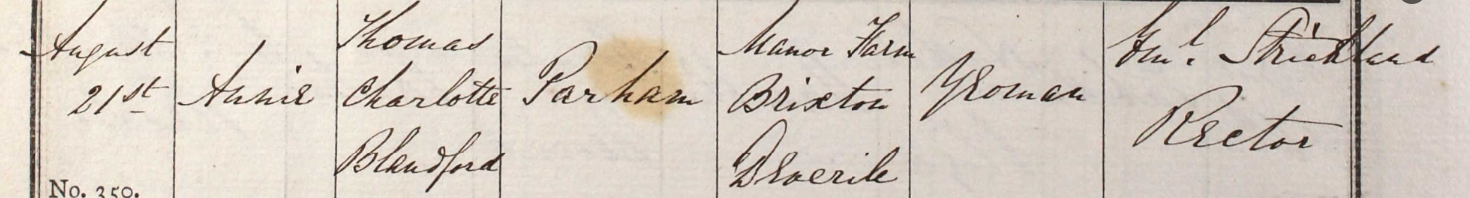 August
21st
No. 350.
Annie
Thomas
Charlotte
Blandford
Parham
Manor Farm
Brixton
Deverile
Yeoman
Strickland
Rector